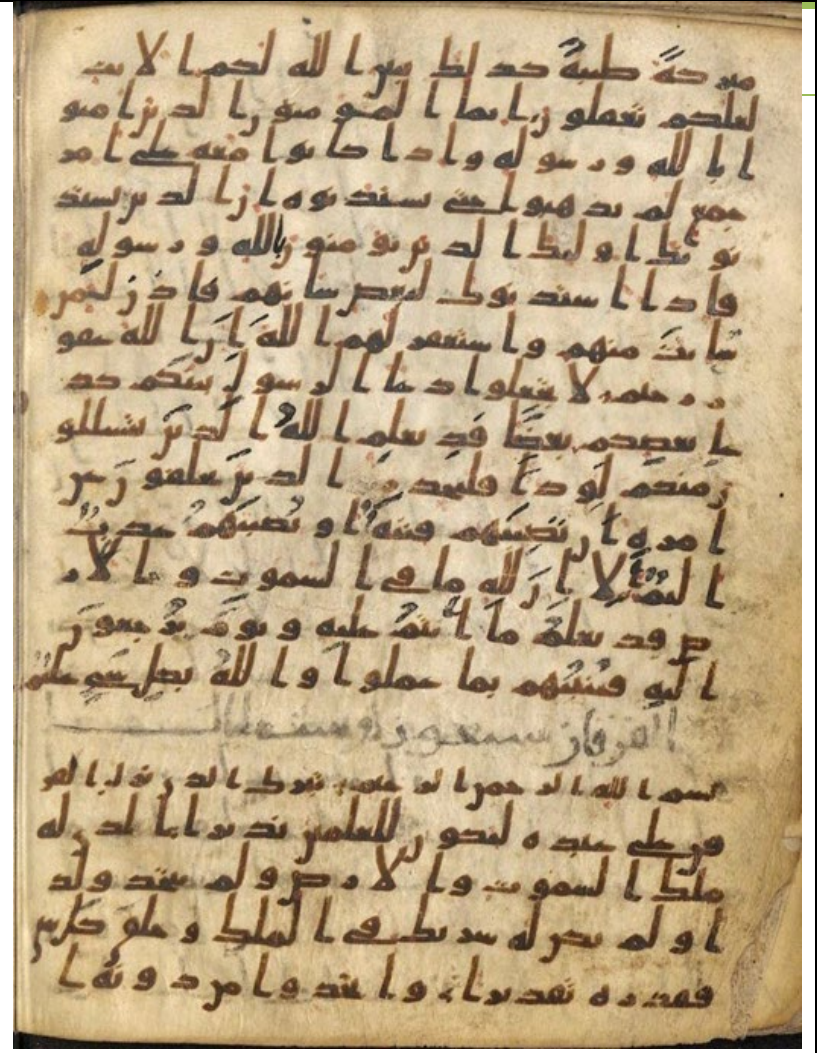 مبركة طيبة كذلك يبين الله لكم الايت
لعلكم تعقلون انما المومنون الذين امنو
ا بالله ورسوله واذا كانوا معه على امر
جمع لم يذهبوا حتى يستذنوه ان الذين يستذ
نونك اوليك الذين يومنون بالله ورسوله
فاذا استذنوك لبعض شانهم فاذن لمن
شيت منهم واستغفر لهم الله ان الله غفو
ر رحيم لا تجعلوا دعا الرسول بينكم كد
عا بعضكم بعضا قد يعلم الله الذين يتسللو
ن منكم لواذا فليحذر الذين يخلفون عن
امره ان تصيبهم فتنة او يصيبهم عذب
اليم الا ان لله ما في السموت والار
ض قد يعلم ما انتم عليه ويوم يرجعون
اليه فينبيهم بما عملوا والله بكل شي عليم
الفرقان سبعون و
بسم الله الرحمن الرحيم تبرك الذي نزل الفر
قن على عبده ليكون للعلمين نذيرا الذي له
ملك السموت والارض ولم يتخذ ولد
ا ولم يكن له شريك في الملك وخلق كل شي
فقدره تقديرا واتخذوا من دونه ا